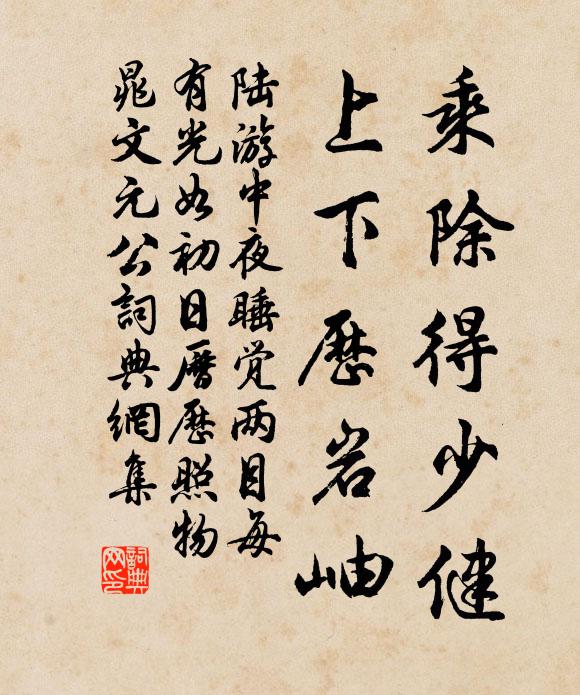 乘除得少健
上下歷岩岫
陆游中夜睡觉两目每
有光如初日曆歷照物
晁文元公詞典網集
詞典网印